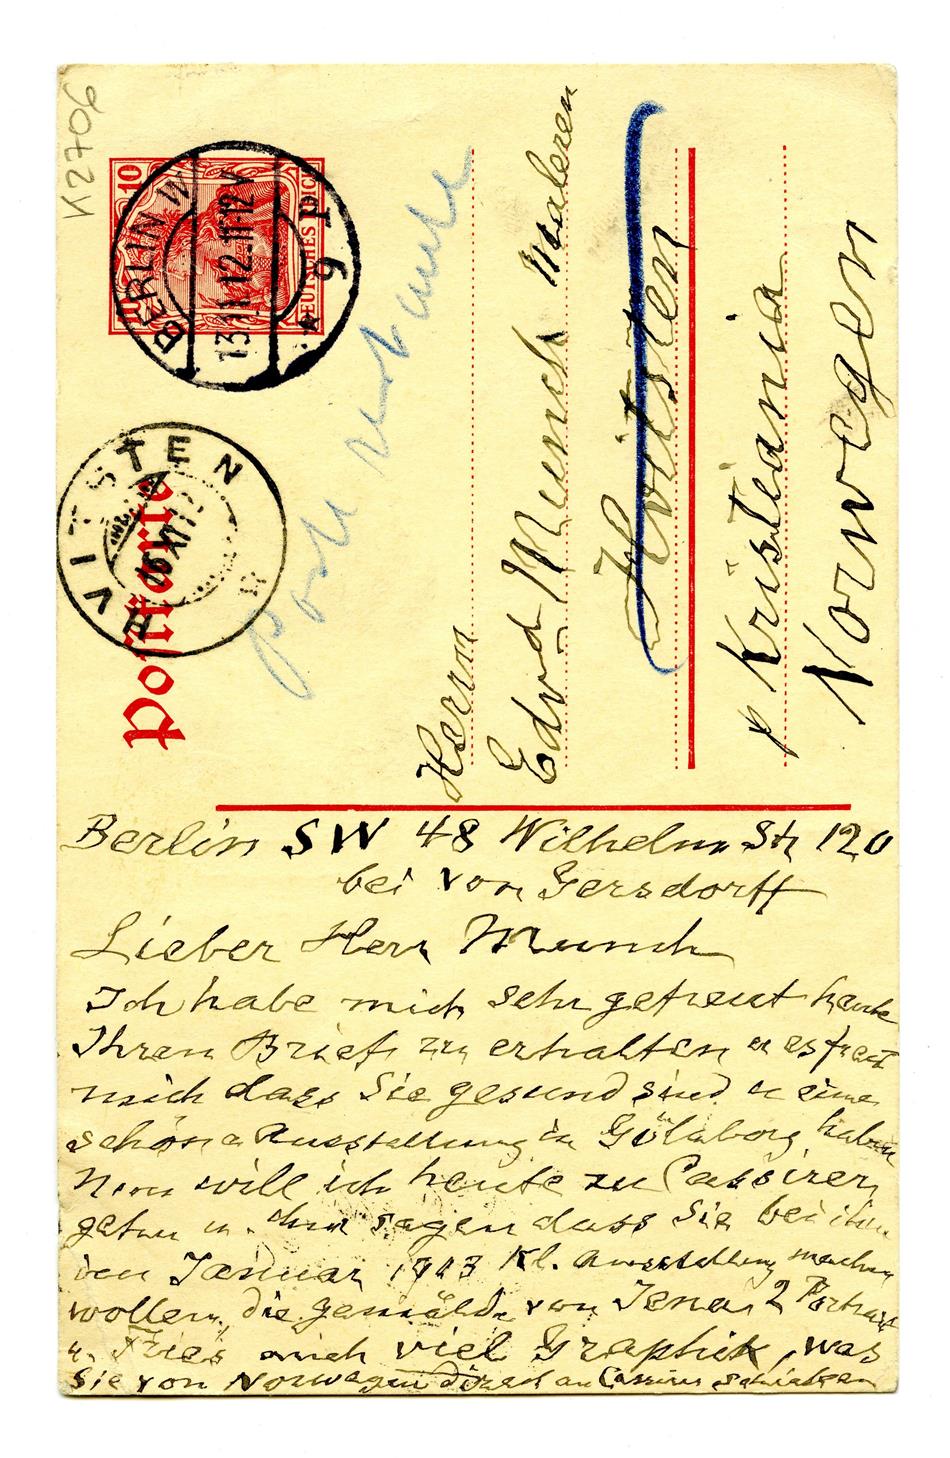 K2706
10
DEUTSCHES REICH
BERLIN W
13.11.12.11-12V
* 9 I
HVITSTEN
16 XI 12
Postkarte
Herrn
Edvard Munch Maleren
Hvitsten
p Kristiania
Norwegen
Berlin SW 48 Wilhelm Str 120
bei von Gersdorff
Lieber Herr Munch
Ich habe mich sehr gefreut heute
Ihren Brief zu erhalten u es freut
mich dass Sie gesund sind u eine
schöne Ausstellung in Göteborg haben
Nun will ich heute zu Cassirer
gehen u. ihm sagen dass Sie bei ihm
im Januar 1913 Kl. Ausstellung machen
wollen, die gemälde von Jena 2 Portrait
u. Fries auch viel Graphik, was
Sie von Norwegen direct an Cassirer schicken